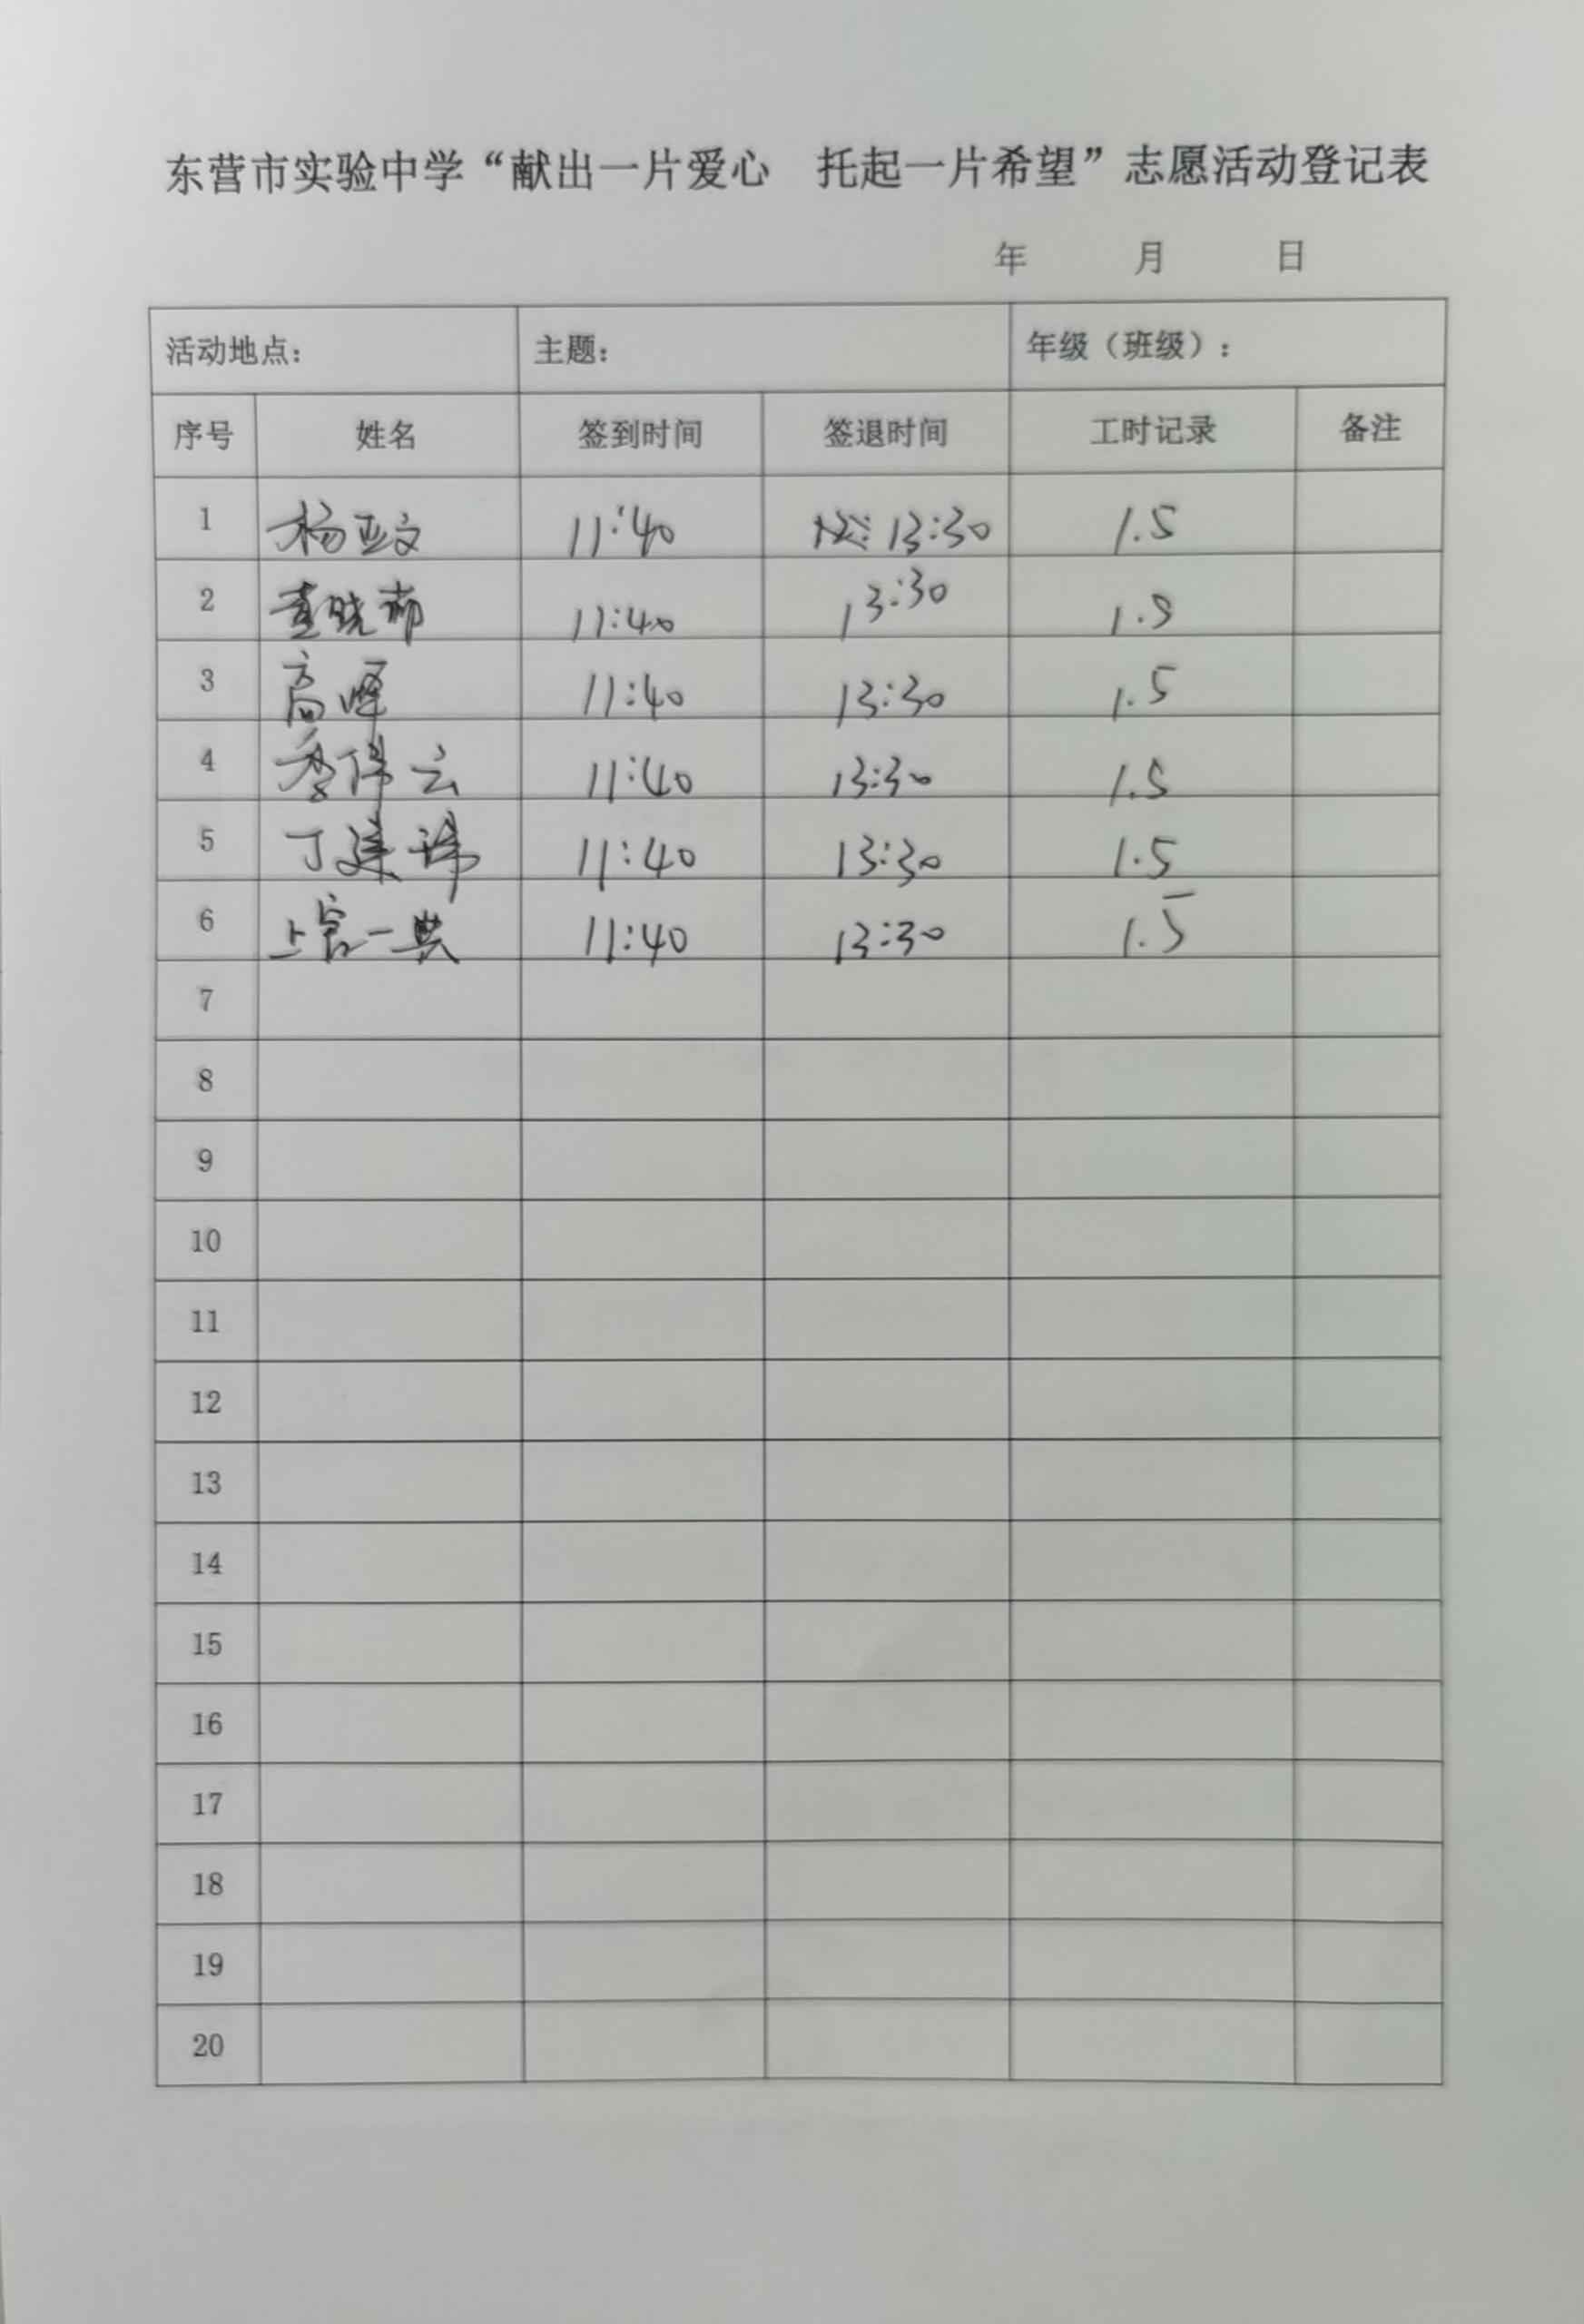 东营市实验中学“献出一片爱心 托起一片希望”志愿活动登记表
年 月 日
活动地点： 主题： 年级（班级）：
序号 姓名 签到时间 签退时间 工时记录 备注
1 杨亚文 11:40 13:30 1.5
2 11:40 13:30 1.5
3 高峰 11:40 13:30 1.5
4 季伟云 11:40 13:30 1.5
5 丁建 11:40 13:30 1.5
6 上官一典 11:40 13:30 1.5
7
8
9
10
11
12
13
14
15
16
17
18
19
20